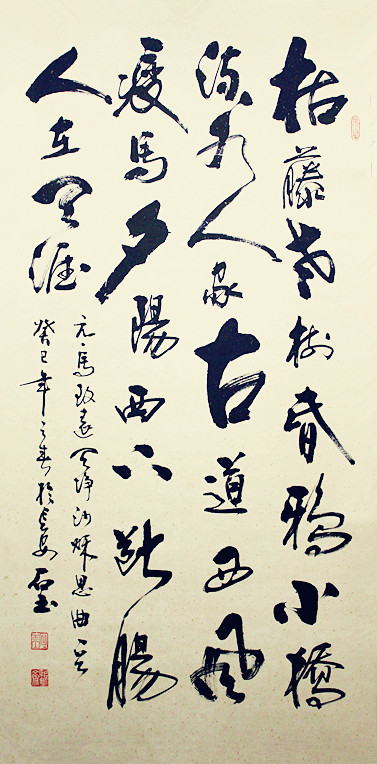 枯藤老樹昏鴉小橋
流水人家古道西風
瘦馬夕陽西下斷腸
人在天涯
元馬致遠天淨沙秋思曲一首
癸巳年之春於長安